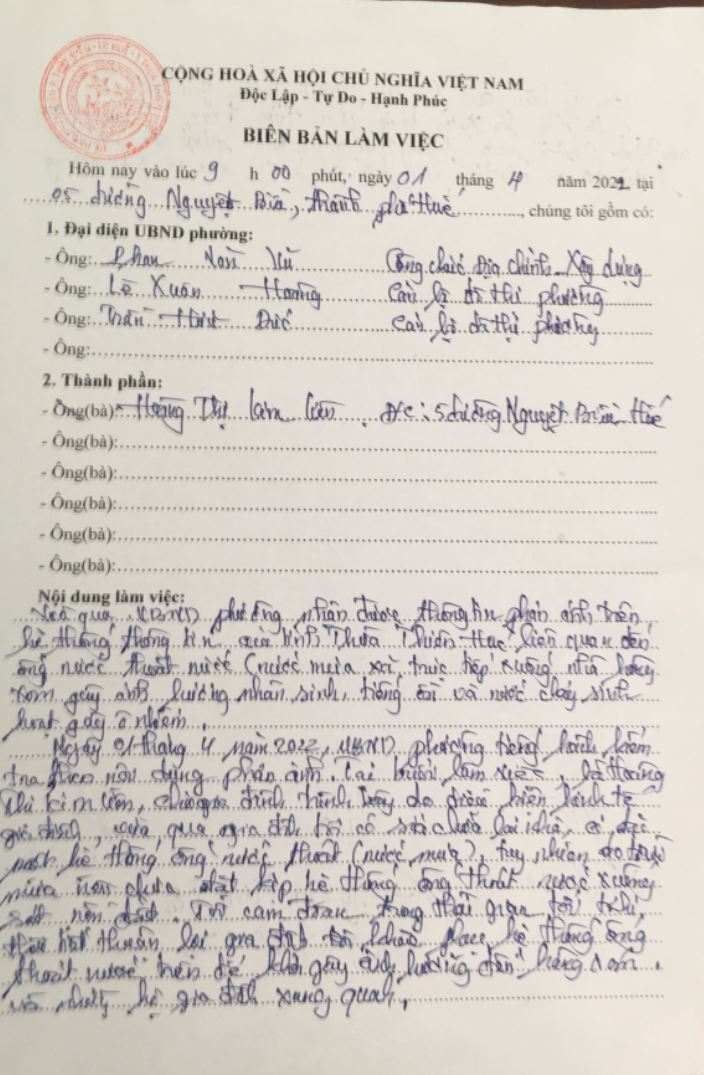 CỘNG HOÀ XÃ HỘI CHỦ NGHĨA VIỆT NAM
Độc Lập - Tự Do - Hạnh Phúc
BIÊN BẢN LÀM VIỆC
Hôm nay vào lúc 9 h 00 phút, ngày 01 tháng 4 năm 2022 tại
05 đường Nguyệt Biều, thành phố Huế, chúng tôi gồm có:
1. Đại diện UBND phường:
- Ông: Phan Vũ Công chức Địa chính Xây dựng
- Ông: Lê Xuân Hoàng Cán bộ đô thị phường
- Ông: Trần Hữu Đức Cán bộ đô thị phường
- Ông:
2. Thành phần:
- Ông(bà): Hoàng Thị ĐC: 5 đường Nguyệt Biều Huế
- Ông(bà):
- Ông(bà):
- Ông(bà):
- Ông(bà):
- Ông(bà):
Nội dung làm việc:
Vừa qua, UBND phường nhận được thông tin phản ánh trên
hệ thống thông tin của tỉnh Thừa Thiên Huế liên quan đến
ống nước thoát nước (nước mưa xả trực tiếp xuống nhà hàng
xóm gây ảnh hưởng nhân sinh, tiếng ồn và nước chảy sinh
hoạt gây ô nhiễm.
Ngày 01 tháng 4 năm 2022, UBND phường tiếng hành kiểm
tra theo nội dung phản ánh. Tại buổi làm việc, bà Hoàng
Thị Kim, chủ gia đình trình bày do điều kiện kinh tế
gia đình, vừa qua gia đình tôi có sửa chữa lại nhà, có
hệ thống ống nước thoát (nước mưa), tuy nhiên do trời
mưa nên chưa đặt kịp hệ thống ống thoát nước xuống
sát nền đất. Tôi cam đoan trong thời gian tới trời
thuận lợi gia đình tôi khắc phục hệ thống ống
thoát nước trên để khỏi gây ảnh hưởng đến hàng xóm
và những hộ gia đình xung quanh.